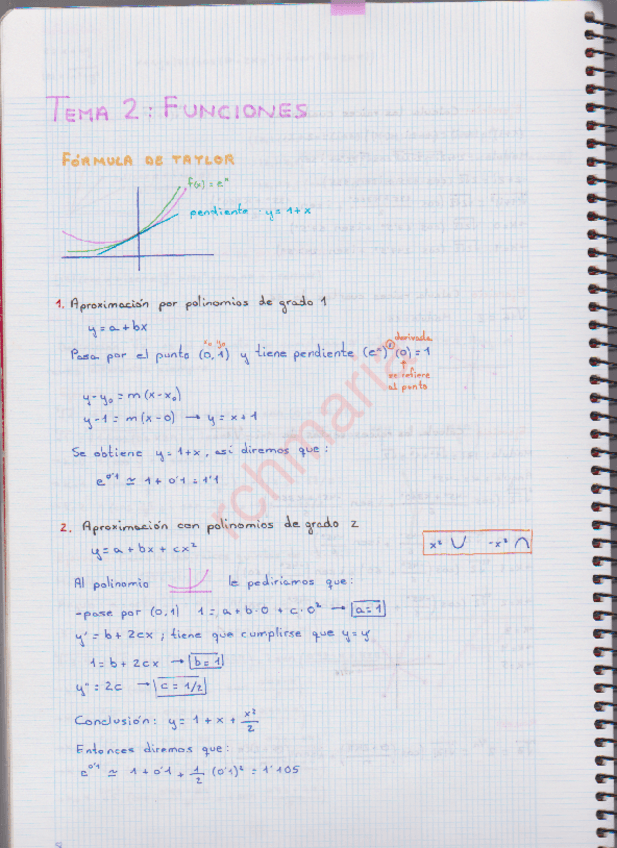 TEMA 2: FUNCIONES
FÓRMULA DE TAYLOR
f(x) = eˣ
pendiente · y = 1 + x
1. Aproximación por polinomios de grado 1
y = a + bx
x₀ y₀
derivada
Pasa por el punto (0, 1) y tiene pendiente (eˣ)' (0) = 1
se refiere
al punto
y - y₀ = m (x - x₀)
y - 1 = m (x - 0) → y = x + 1
Se obtiene y = 1 + x, así diremos que:
e^0'1 ≃ 1 + 0'1 = 1'1
2. Aproximación con polinomios de grado 2
y = a + bx + cx²
x² ∪ -x² ∩
Al polinomio le pediríamos que:
- pase por (0, 1) 1 = a + b·0 + c·0² → a = 1
y' = b + 2cx ; tiene que cumplirse que y = y'
1 = b + 2cx → b = 1
y'' = 2c → c = 1/2
Conclusión: y = 1 + x + x²/2
Entonces diremos que:
e^0'1 ≃ 1 + 0'1 + 1/2 (0'1)² = 1'105
rchmaria